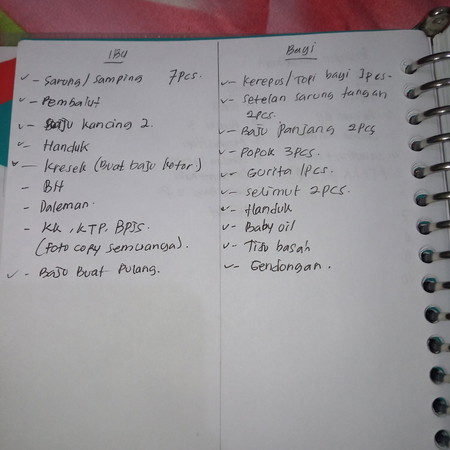 IBU
✓ - Sarung / Samping 7pcs.
✓ - Pembalut
- Baju kancing 2.
✓ - Handuk
✓ - Kresek (Buat baju kotor)
- BH
- Daleman.
- KK, KTP, BPJS.
(foto copy semuanya).
✓ - Baju Buat Pulang.
Bayi
✓ - Kerepus / Topi bayi 1pcs-
✓ - Setelan sarung tangan
2pcs.
✓ - Baju Panjang 2pcs
✓ - POPOK 3pcs.
✓ - Gurita 1pcs.
✓ - selimut 2pcs.
✓ - Handuk
✓ - Baby oil
✓ - Tisu basah
✓ - Gendongan.